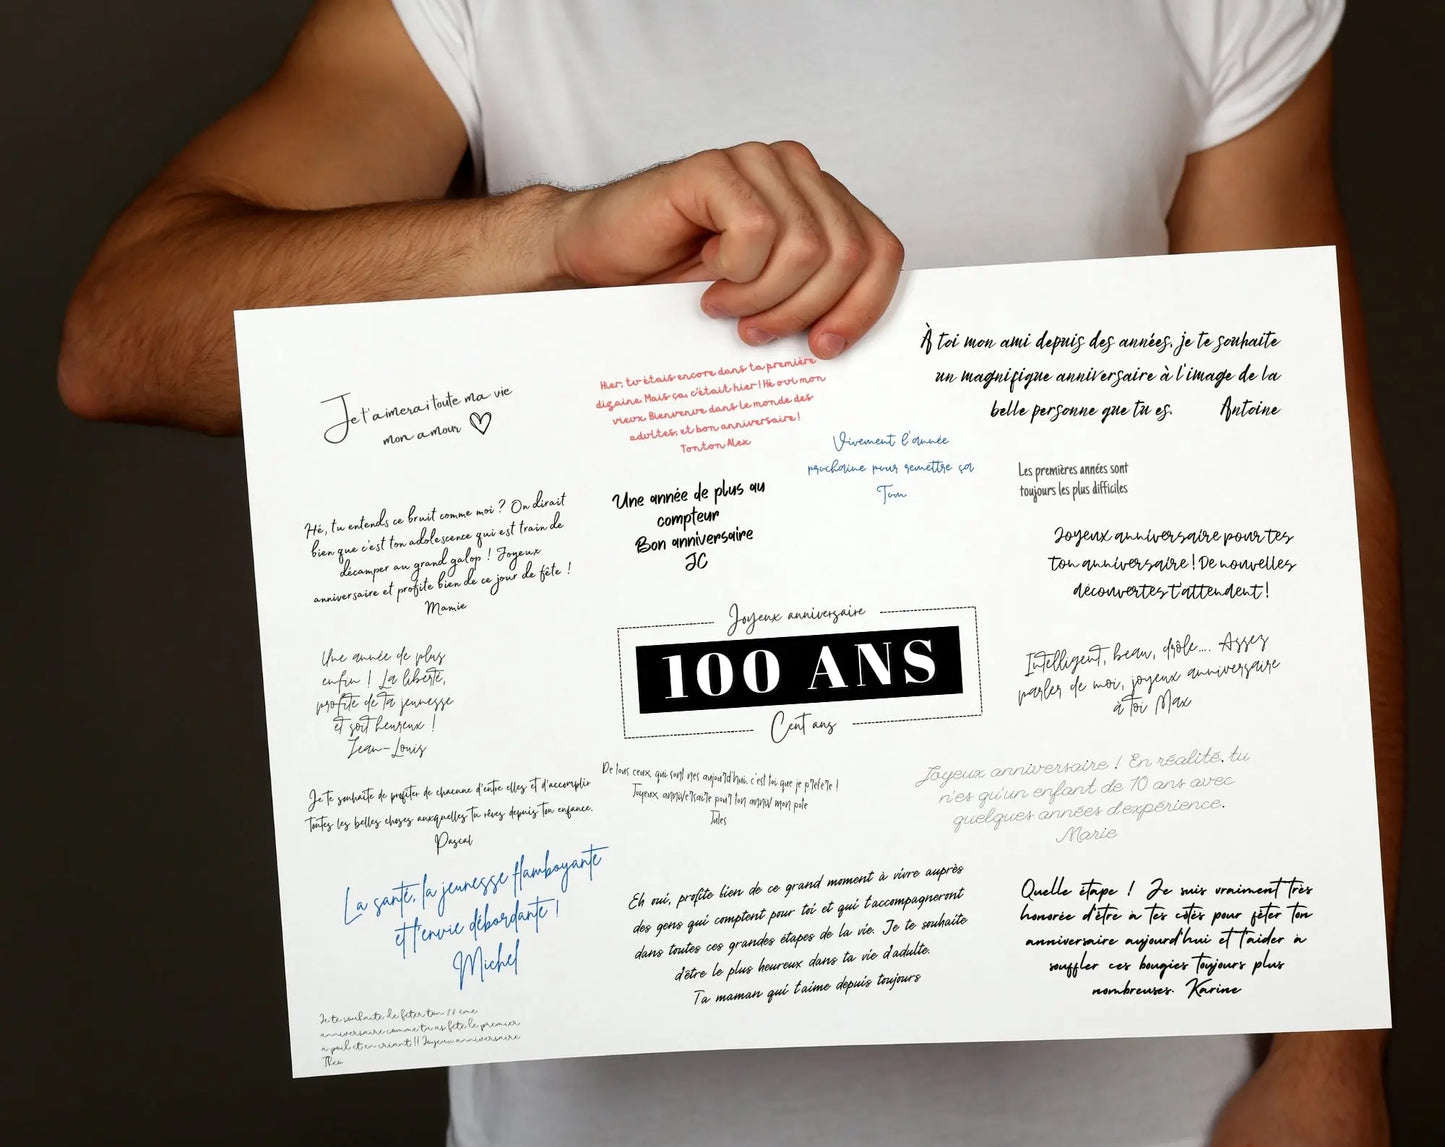 Je t'aimerai toute ma vie
mon amour
Hier, tu étais encore dans ta première
dizaine. Mais ça, c'était hier ! Hé oui mon
vieux. Bienvenue dans le monde des
adultes, et bon anniversaire !
Tonton Alex
À toi mon ami depuis des années, je te souhaite
un magnifique anniversaire à l'image de la
belle personne que tu es. Antoine
Vivement l'année
prochaine pour remettre ça
Tom
Les premières années sont
toujours les plus difficiles
Hé, tu entends ce bruit comme moi ? On dirait
bien que c'est ton adolescence qui est train de
décamper au grand galop ! Joyeux
anniversaire et profite bien de ce jour de fête !
Mamie
Une année de plus au
compteur
Bon anniversaire
JC
Joyeux anniversaire pour tes
ton anniversaire ! De nouvelles
découvertes t'attendent !
Joyeux anniversaire
100 ANS
Cent ans
Une année de plus
enfin ! La liberté,
profite de ta jeunesse
et soit heureux !
Jean-Louis
Intelligent, beau, drôle.... Assez
parler de moi, joyeux anniversaire
à toi Max
Je te souhaite de profiter de chacune d'entre elles et d'accomplir
toutes les belles choses auxquelles tu rêves depuis ton enfance.
Pascal
De tous ceux qui sont nés aujourd'hui, c'est toi que je préfère !
Joyeux anniversaire pour ton anniv mon pote
Jules
Joyeux anniversaire ! En réalité, tu
n'es qu'un enfant de 10 ans avec
quelques années d'expérience.
Marie
La santé, la jeunesse flamboyante
et l'envie débordante !
Michel
Eh oui, profite bien de ce grand moment à vivre auprès
des gens qui comptent pour toi et qui t'accompagneront
dans toutes ces grandes étapes de la vie. Je te souhaite
d'être le plus heureux dans ta vie d'adulte.
Ta maman qui t'aime depuis toujours
Quelle étape ! Je suis vraiment très
honorée d'être à tes côtés pour fêter ton
anniversaire aujourd'hui et t'aider à
souffler ces bougies toujours plus
nombreuses. Karine
Je te souhaite de fêter ton ème
anniversaire comme tu as fêté le premier
à poil et en criant !! Joyeux anniversaire
Théo